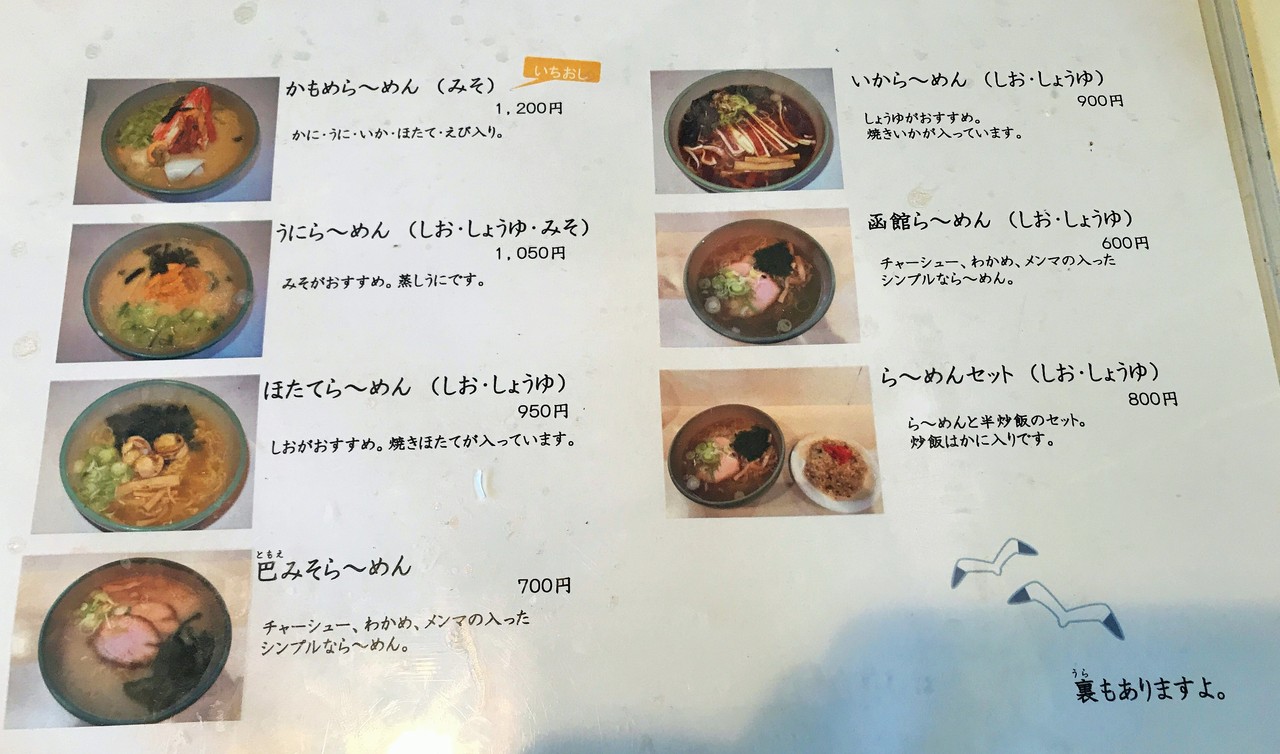 かもめら～めん（みそ）
いちおし
1,200円
かに・うに・いか・ほたて・えび入り。
うにら～めん（しお・しょうゆ・みそ）
1,050円
みそがおすすめ。蒸しうにです。
ほたてら～めん（しお・しょうゆ）
950円
しおがおすすめ。焼きほたてが入っています。
ともえ
巴みそら～めん
700円
チャーシュー、わかめ、メンマの入った
シンプルなら～めん。
いから～めん（しお・しょうゆ）
900円
しょうゆがおすすめ。
焼きいかが入っています。
函館ら～めん（しお・しょうゆ）
600円
チャーシュー、わかめ、メンマの入った
シンプルなら～めん。
ら～めんセット（しお・しょうゆ）
800円
ら～めんと半炒飯のセット。
炒飯はかに入りです。
うら
裏もありますよ。